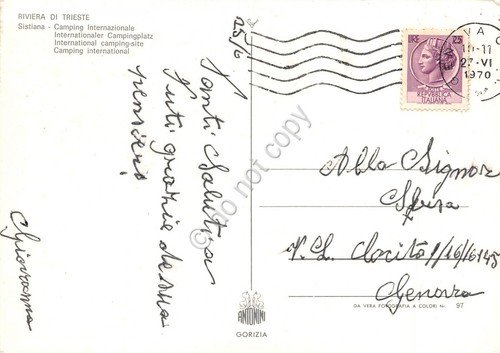 RIVIERA DI TRIESTE
Sistiana - Camping Internazionale
Internationaler Campingplatz
International camping-site
Camping international
25/6
Tanti Saluti a
tutti grazie della
pensieri
Giovanna
do not copy
ANTONINI
GORIZIA
VA
10-11
27-VI
1970
25
REPUBBLICA
ITALIANA
Alla Signora
V. L.
16/6145
Genova
DA VERA FOTOGRAFIA A COLORI Nr. 97